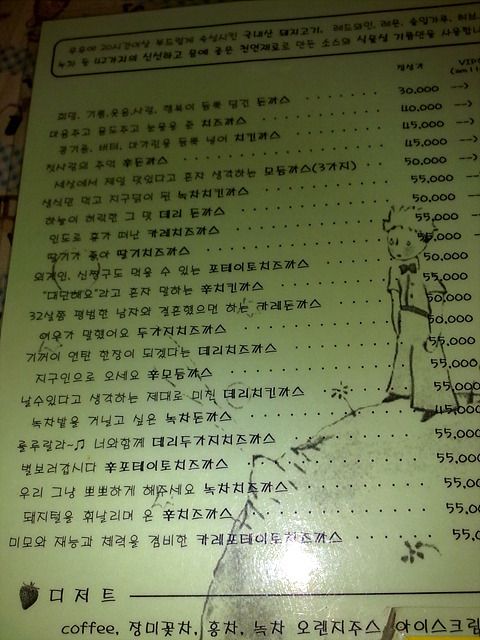 우유에 20시간이상 부드럽게 숙성시킨 국내산 돼지고기, 레드와인, 레몬, 올림가루, 허브
녹차 등 42가지의 신선하고 몸에 좋은 천연재료로 만든 소스와 식물성 기름만을 사용합니
정상가 VIP
희망, 기쁨, 웃음, 사랑, 행복이 듬뿍 담긴 돈까스 30,000 -->
대응주고 울도주고 눈물을 준 치즈까스 40,000 -->
콩기름, 버터, 마가린을 듬뿍 넣어 치킨까스 45,000 -->
첫사랑의 추억 후돈까스 45,000 -->
세상에서 제일 맛있다고 혼자 생각하는 모듬까스(3가지) 50,000 -->
생식만 먹고 지구덮이 된 녹차치킨까스 55,000
하늘이 허락한 그 맛 데리 돈까스 50,000
인도로 휴가 떠난 카레치즈까스 55,000
딸기가 좋아 딸기치즈까스 55,000
외계인, 신짱구도 먹을 수 있는 포테이토치즈까스 50,000
"대단해요"라고 혼자 말하는 후치킨까스 55,000
32살쯤 평범한 남자와 결혼했으면 하는 카레돈까스 50,000
여우가 말했어요 두가지치즈까스 50,000
기꺼이 연탄 한장이 되겠다는 데리치즈까스 55,000
지구인으로 오세요 후모듬까스 55,000
날수있다고 생각하는 제대로 미친 데리치킨까스 55,000
녹차밭을 거닐고 싶은 녹차돈까스 45,000
룰루랄라~♫ 너와함께 데리두가지치즈까스 55,000
별보러갑시다 후포테이토치즈까스 55,00
우리 그냥 뽀뽀하게 해주세요 녹차치즈까스 55,00
돼지털을 휘날리며 온 후치즈까스 55,00
미모와 재능과 체력을 겸비한 카레포테이토치즈까스 55,0
디저트
coffee, 장미꽃차, 홍차, 녹차 오렌지주스, 아이스크림